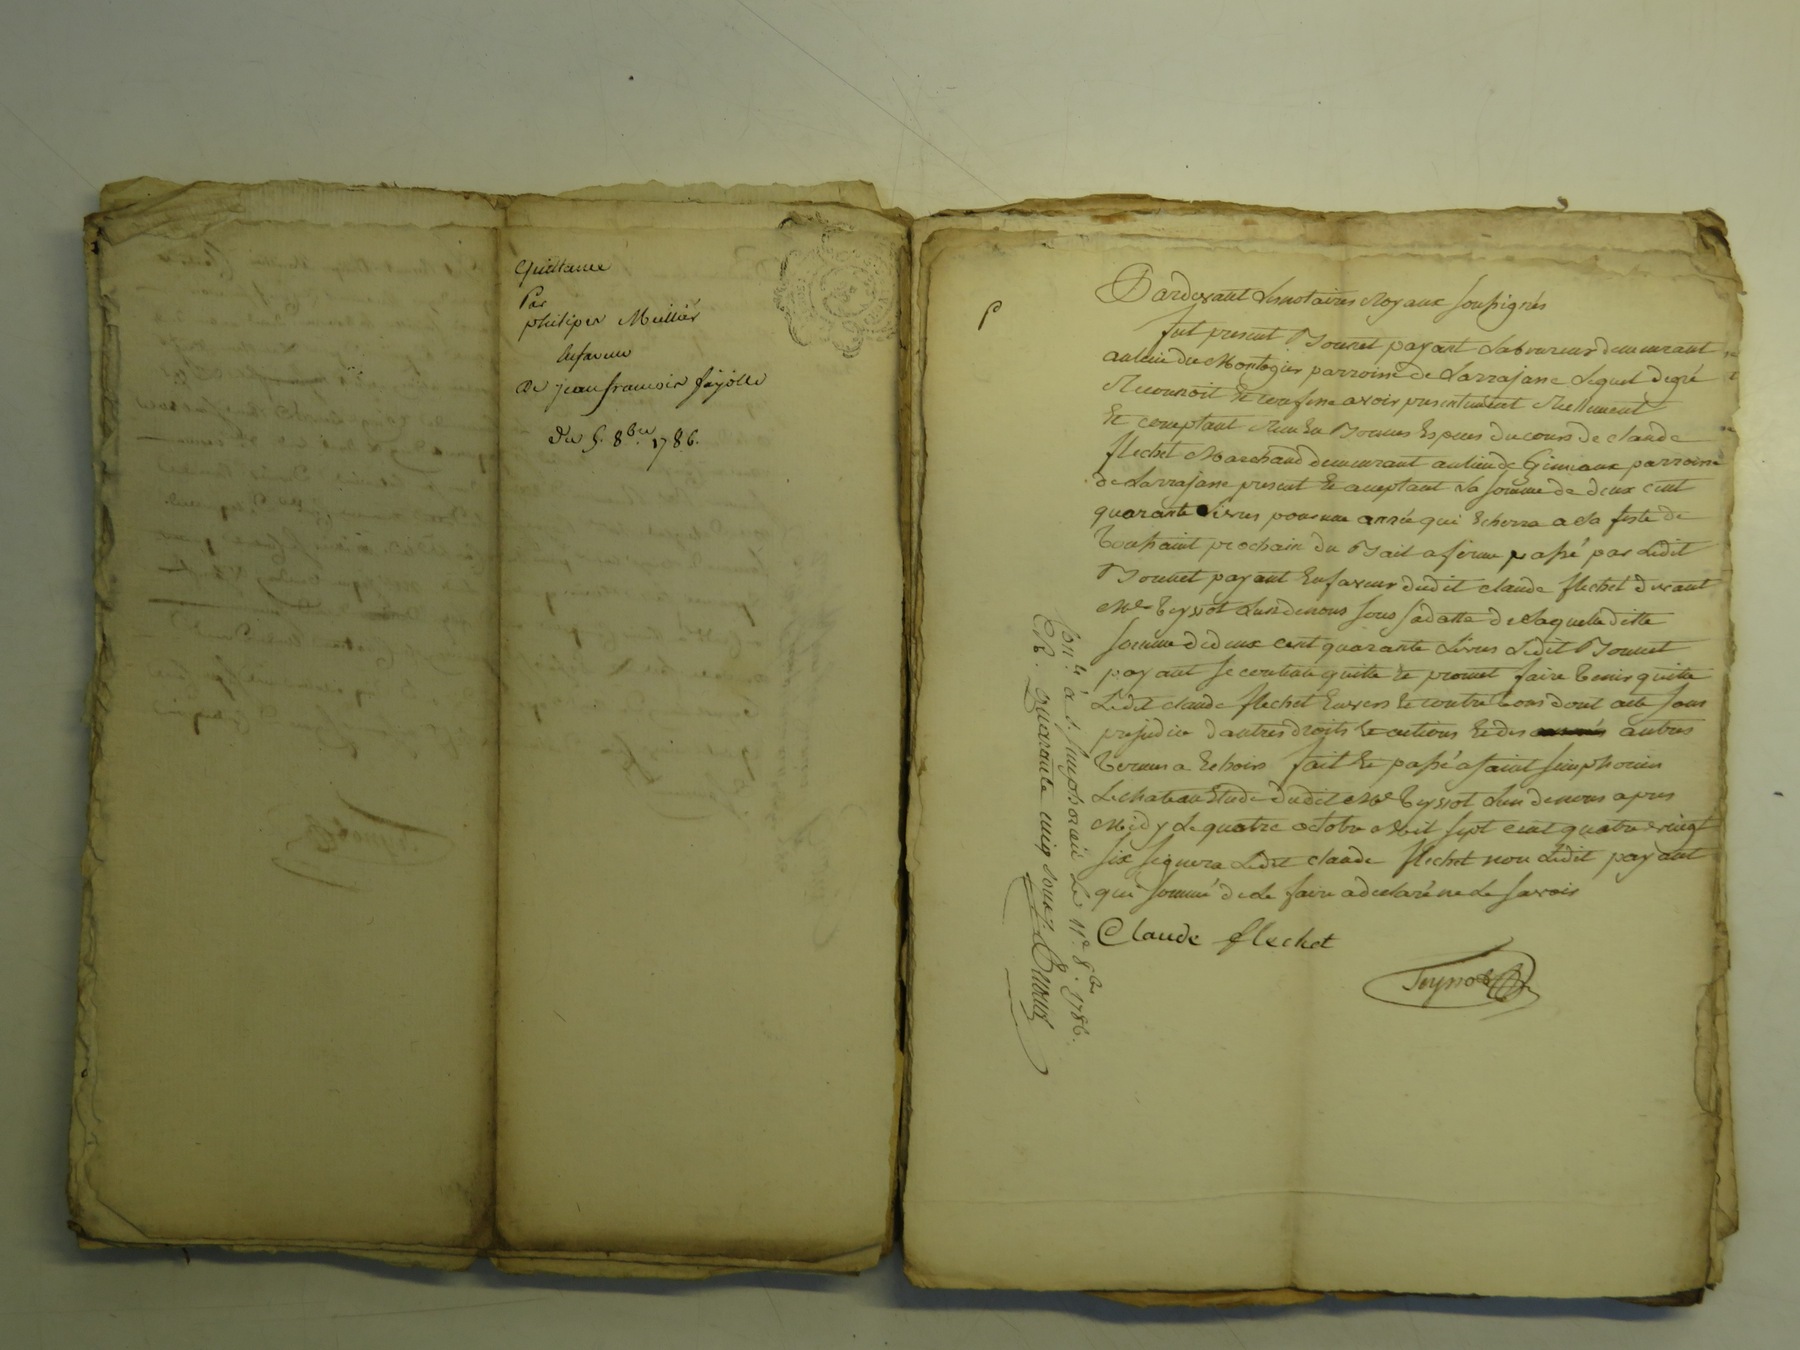 Quittance
Par
philiper Mellier
enfaveur
De jean francois fayolle
Du 5. 8bre 1786.
P
Pardevant Les notaires Royaux soussignés
fut present Bonnet payant Laboureur demeurant
au lieu de Montagier parroisse de Larrajasse Lequel de gré
Reconnoit et confesse avoir presentement Réellement
Et comptant Reçu En Bonnes Especes du cours de claude
flechet Marchand demeurant au lieu de Gimiaux parroisse
de Larrajasse present Et acceptant La somme de deux cent
quarante Livres pour une année qui Echerra a La feste de
Toussaint prochain du Bail a ferme passé par Ledit
Bonnet payant En faveur dudit claude flechet devant
Me Teyssot L'un de nous sous sa datte de Laquelle ditte
somme de deux cent quarante Livres Ledit Bonnet
payant se contente quitte et promet faire Tenir quitte
Ledit claude flechet Envers Et contre Tous dont acte sans
prejudice d'autres droits Et actions Et des autres
Termes a Echoir fait Et passé a saint simphorien
Le chateau Etude dudit Me Teyssot L'un de nous apres
Midy Le quatre octobre Mil sept cent quatre vingt
six signera Ledit claude flechet non Ledit payant
qui sommé de Le faire a declaré ne Le savoir
Claude flechet
Teyssot
Con.lé à S. Simphorien Le 11e 8bre 1786.
R. quarante cinq sous